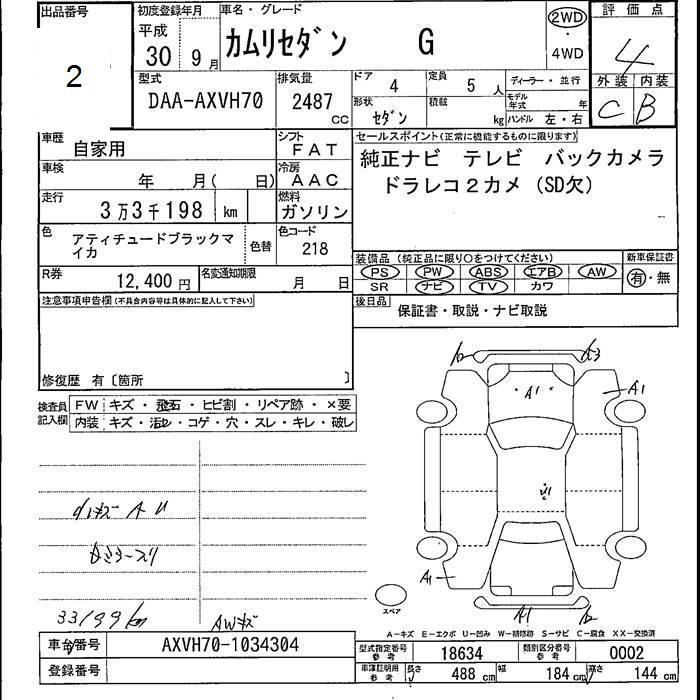 出品番号
2
初度登録年月
平成
30 9月
車名・グレード
カムリセダン G
2WD
・
4WD
評価点
4
外装 内装
C B
型式
DAA-AXVH70
排気量
2487
CC
ドア 4
定員 5 人
形状 セダン
積載 kg
ディーラー・並行
モデル年式 年
ハンドル 左・右
車歴
自家用
シフト
FAT
車検
年 月( 日)
冷房
AAC
走行
3万3千198 km
燃料
ガソリン
色
アティチュードブラックマイカ
色替
色コード
218
R券
12,400円
名変通知期限
月 日
セールスポイント(正常に機能するものに限ります)
純正ナビ テレビ バックカメラ
ドラレコ2カメ (SD欠)
装備品 (純正品に限り○をつけてください)
PS PW ABS エアB AW
SR ナビ TV カワ
新車保証書
有・無
後日品
保証書・取説・ナビ取説
注意事項申告欄(不具合内容等は具体的に記入して下さい)
修復歴 有〔箇所 〕
検査員
記入欄
FW キズ・飛石・ヒビ割・リペア跡・×要
内装 キズ・汚れ・コゲ・穴・スレ・キレ・破レ
33199km
AWキズ
A3
A1
A1
A1
A1
スペア
A-キズ E-エクボ U-凹み W-補修跡 S-サビ C-腐食 XX-交換済
車台番号
AXVH70-1034304
登録番号
型式指定番号
参考
18634
類別区分番号
参考
0002
車庫証明用
参考
長さ 488cm
幅 184cm
高さ 144cm